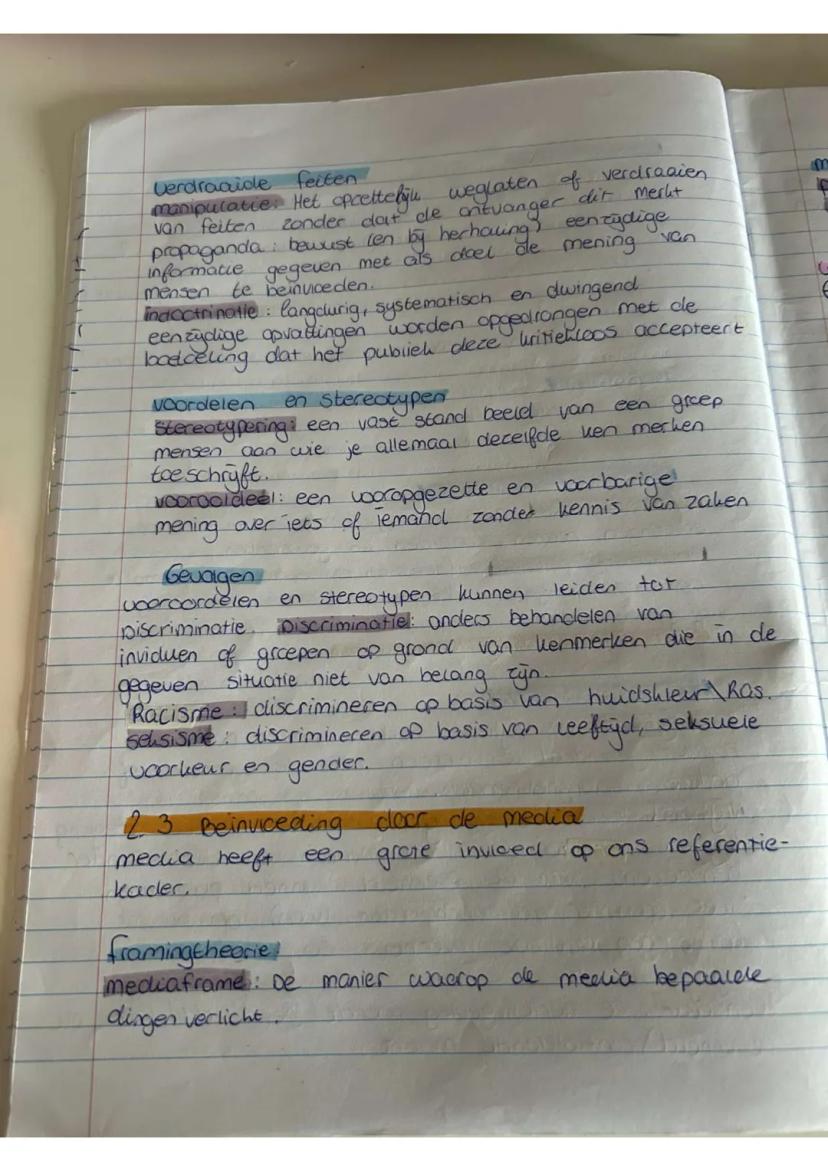 verdraaide feiten
manipulatie: Het opzettelijk weglaten of verdraaien
van feiten zonder dat de ontvanger dit merkt
propaganda: bewust (en bij herhaling) eenzijdige
informatie gegeven met als doel de mening van
mensen te beïnvloeden.
indoctrinatie: langdurig, systematisch en dwingend
eenzijdige opvattingen worden opgedrongen met de
bedoeling dat het publiek deze kritiekloos accepteert
voordelen en stereotypen
stereotypering: een vast stand beeld van een groep
mensen aan wie je allemaal dezelfde ken merken
toeschrijft.
vooroordeel: een vooropgezette en voorbarige
mening over iets of iemand zonder kennis van zaken
Gevolgen
vooroordelen en stereotypen kunnen leiden tot
Discriminatie. Discriminatie: anders behandelen van
inviduen of groepen op grond van kenmerken die in de
gegeven situatie niet van belang zijn.
Racisme: discrimineren op basis van huidskleur\Ras.
seksisme: discrimineren op basis van leeftijd, seksuele
voorkeur en gender.
2.3 Beinvloeding door de media
media heeft een grote invloed op ons referentie-
kader.
framingtheorie
mediaframe: De manier waarop de media bepaalde
dingen verlicht.